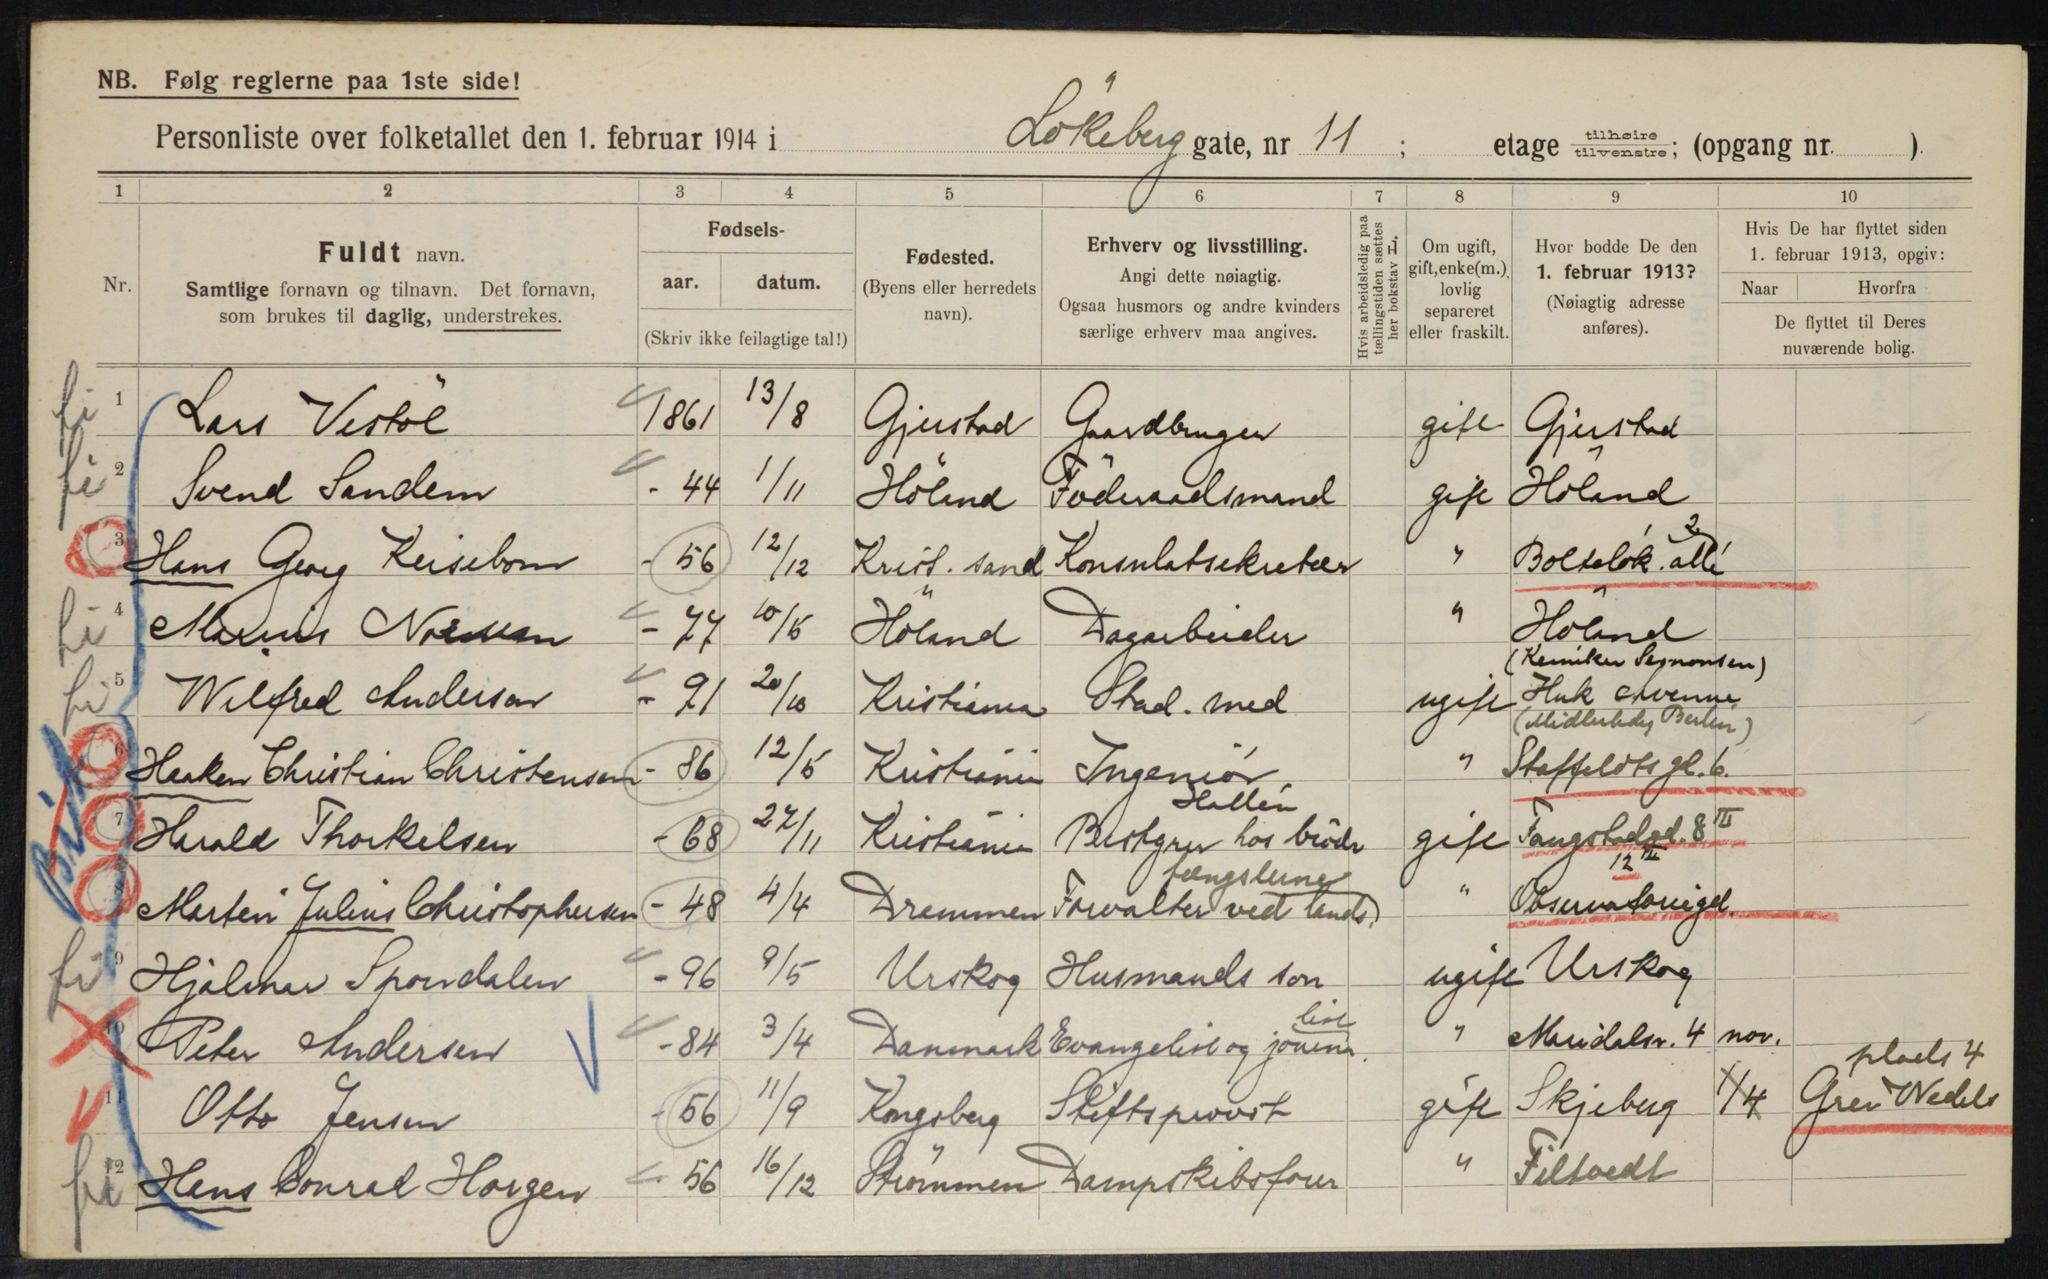 NB. Følg reglerne paa 1ste side!
Personliste over folketallet den 1. februar 1914 i Lökeberg gate, nr 11 ; etage tilhøire tilvenstre; (opgang nr. ).
1 2 3 4 5 6 7 8 9 10
Nr.
Fuldt navn.
Samtlige fornavn og tilnavn. Det fornavn,
som brukes til daglig, understrekes.
Fødsels-
aar. datum.
(Skriv ikke feilagtige tal!)
Fødested.
(Byens eller herredets
navn).
Erhverv og livsstilling.
Angi dette nøiagtig.
Ogsaa husmors og andre kvinders
særlige erhverv maa angives.
Hvis arbeidsledig paa
tællingstiden sættes
her bokstav L.
Om ugift,
gift, enke(m.),
lovlig
separeret
eller fraskilt.
Hvor bodde De den
1. februar 1913?
(Nøiagtig adresse
anføres).
Hvis De har flyttet siden
1. februar 1913, opgiv:
Naar Hvorfra
De flyttet til Deres
nuværende bolig.
fi 1 Lars Vestöl 1861 13/8 Gjerstad Gaardbruger gift Gjerstad
fi 2 Svend Sandem - 44 1/11 Höland Föderaadsmand gift Höland
3 Hans Georg Keisebom - 56 12/12 Krist.sand Konsulatsekretær " Bolteløk. allé 2
fi 4 Marius - 77 10/5 Höland Dagarbeider " Höland
fi 5 Wilfred Anderson - 91 20/10 Kristiania Stud. med ugift (Kemiker Segnonsen)
Huk Avenue
(Midlertidig Berlin)
6 Haaken Christian Christensen - 86 12/5 Kristiania Ingeniör " Staffeldts gt. 6.
7 Harald Thorkelsen - 68 27/11 Kristiania Bestyrer hos brödr Hallén gift Tangstadgd. 8 III
8 Martin Julius Christophersen - 48 4/4 Drammen Forvalter ved lands. fængslerne " Observatoriegd. 12 III
fi 9 Hjalmar Spondalen - 96 9/5 Urskog Husmands son ugift Urskog
10 Peter Andersen - 84 3/4 Danmark Evangelist og journa. list " Maridalsv. 4 nov.
11 Otto Jensen - 56 11/9 Kongsberg Stiftsprovst gift Skjeberg 1/4 Grev Wedels plads 4
fri 12 Hans Conrad Horgen - 56 16/12 Strömmen Dampskibsförer " Filtvedt